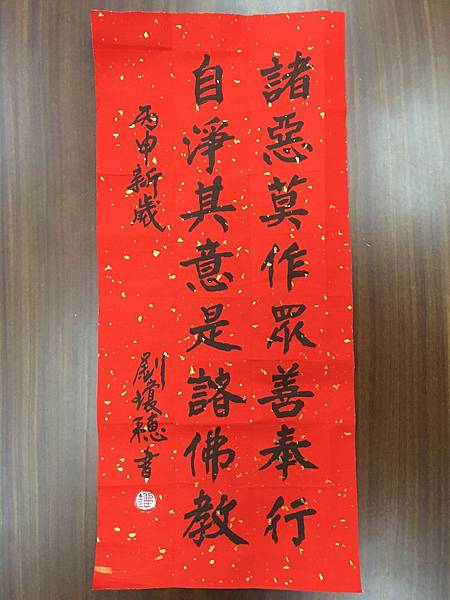 諸惡莫作眾善奉行
自淨其意是諮佛教
丙申新歲
劉瓊穗書